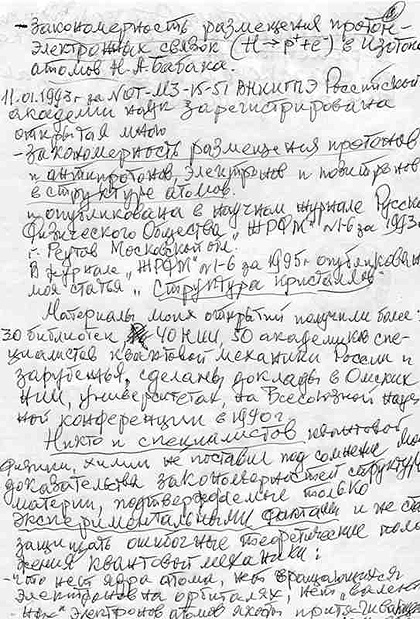 - Закономерность размещения протон-
электронных связок (H→p⁺+e⁻) в изотоп
атомов Н.А. Бабака.
11.01.1993г за №ОТ-МЗ-15-51 ВНИИПЭ Российской
академии наук зарегистрирована
открытая мною
- Закономерность размещения протонов
и антипротонов, электронов и позитронов
в структуре атомов.
и опубликована в научном журнале Русск
Физического Общества "ЖРФМ" №1-6 за 1993
г. Реутов Московской обл.
В журнале "ЖРФМ" №1-6 за 1995г опубликован
моя статья "Структура кристаллов"
Материалы моих открытий получили более:
30 библиотек, 40 НИИ, 50 академиков спе-
циалистов квантовой механики России и
зарубежья, сделаны доклады в Омских
НИИ, университетах, на Всесоюзной науч
ной конференции в 1990г.
Никто из специалистов квантовой
физики, химии не поставил под сомнение мои
доказательства закономерностей структуры
материи, подтверждаемые только
экспериментальными фактами и не ст
защищать ошибочные теоретические поло
жения квантовой механики:
- что нет ядра атома, нет вращающихся
электронов на орбиталях, нет "вален
ных" электронов атомов якобы притягива